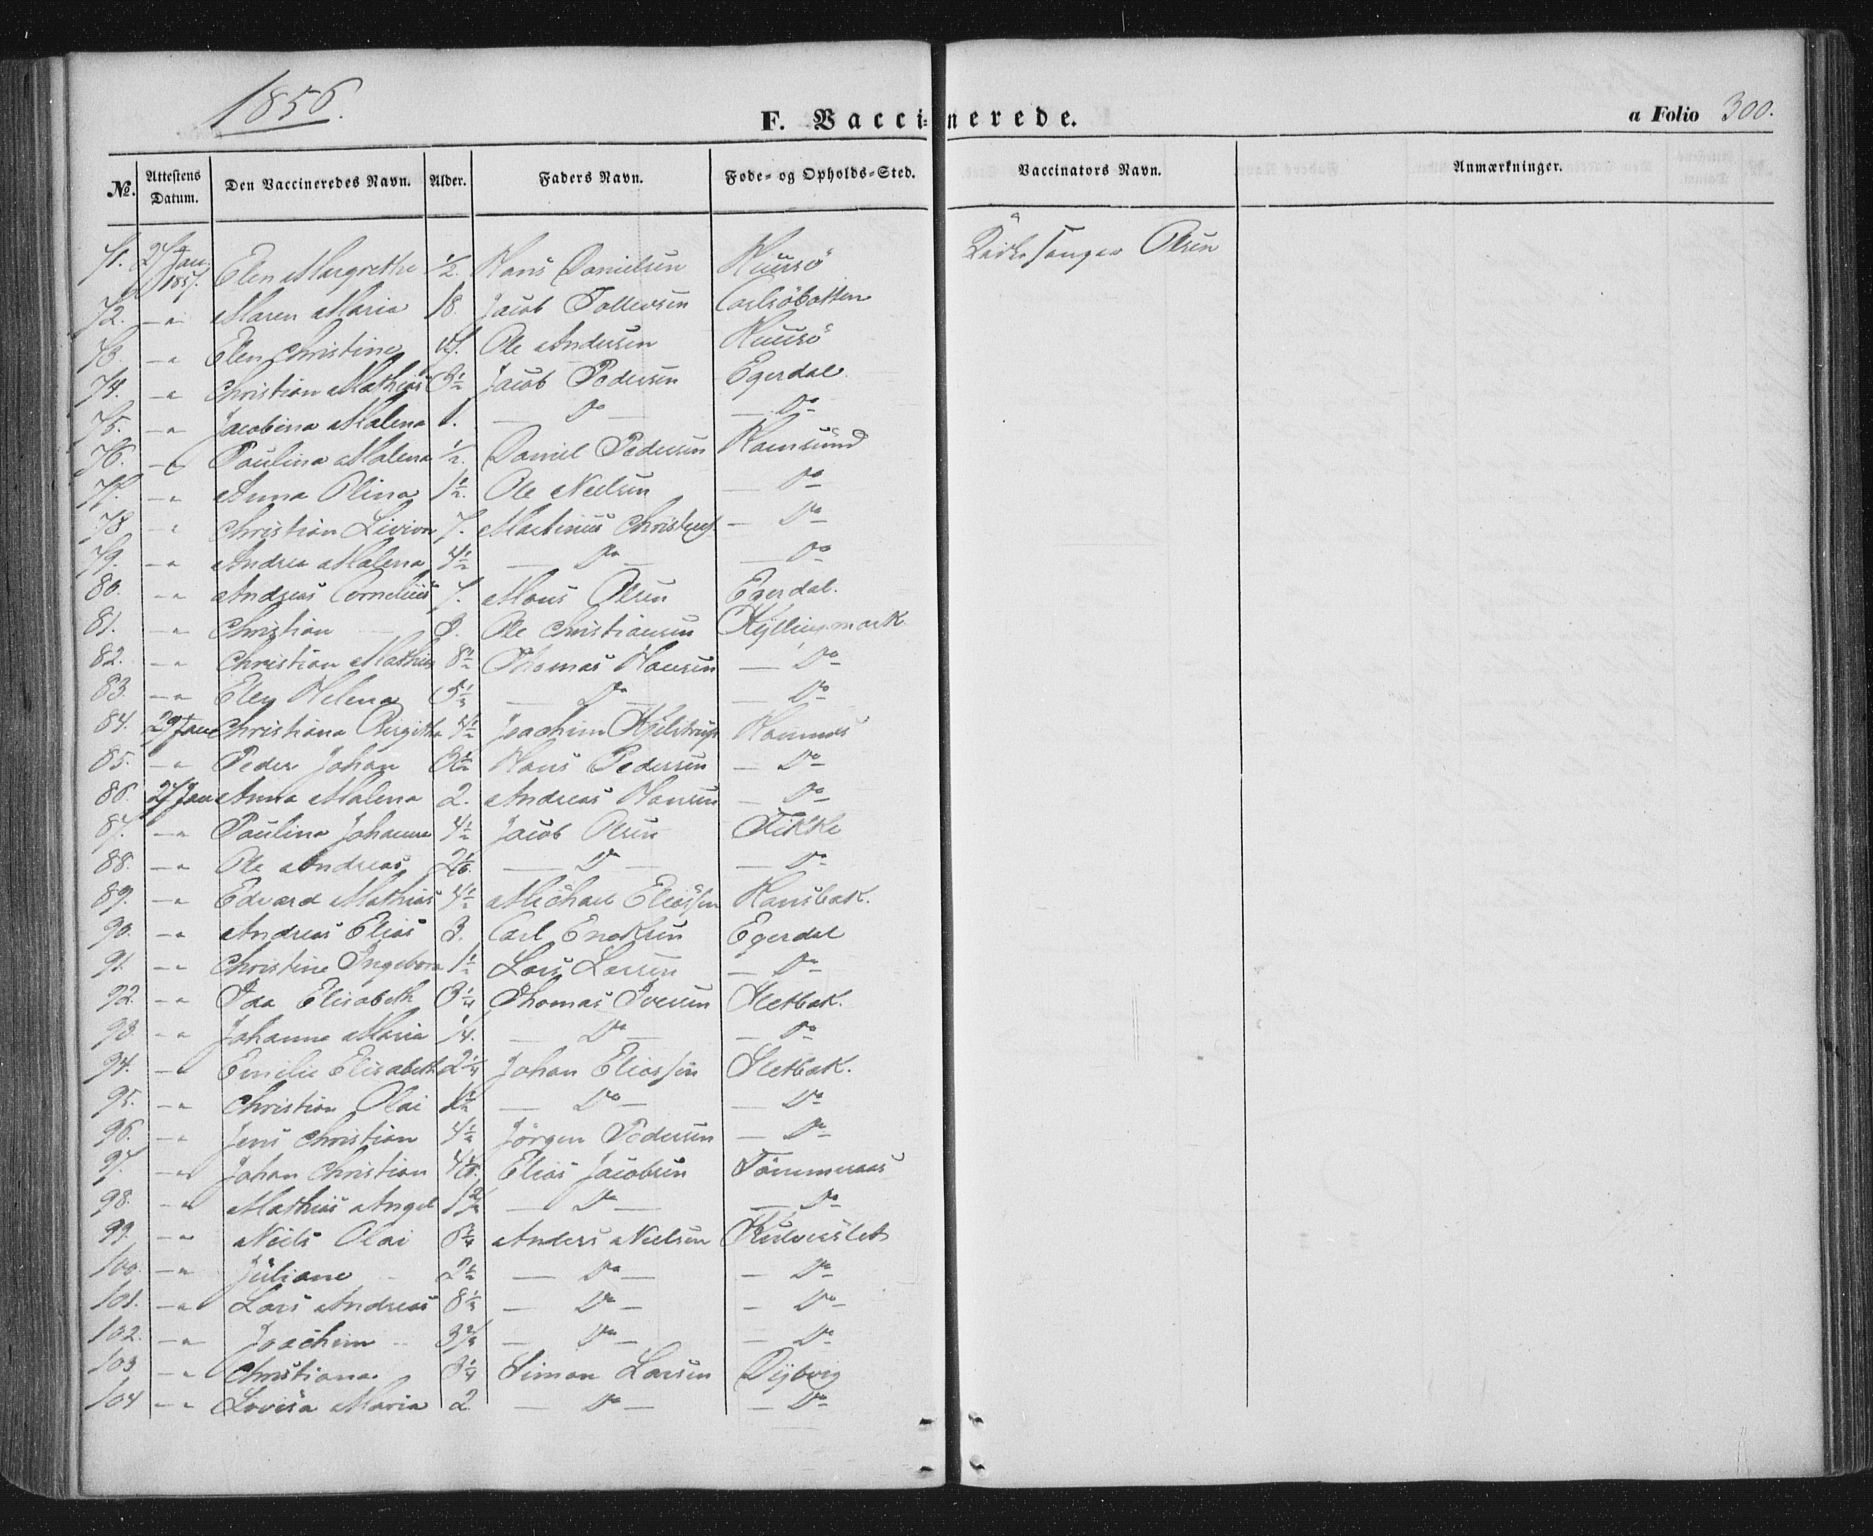 1856.
F. Vaccinerede.
a Folio 300.
No. Attestens Datum. Den Vaccineredes Navn. Alder. Faders Navn. Føde- og Opholds-Sted. Vaccinators Navn. Anmærkninger.
71. 27 Jan. 1857. Elen Margrethe 1/2. Hans Danielsen Kirkesanger Olsen
72. - " Maren Maria 18. Jacob Tollevsen
73. - " Elen Christine Ole Andersen
74. - " Christian Mathias 3 1/2 Jacob Pedersen Egerdal
75. - " Jacobina Malena 1. Do Do
76. - " Paulina Malena 1/2. Daniel Pedersen Ramsund
77. - " Anna Olina 1 1/2. Ole Nielsen Do
78. - " Christian 7. Martinus Do
79. - " Andrea Malena 4 1/2 Do Do
80. - " Andreas Cornelius 7. Mons Olsen Egerdal.
81. - " Christian Ole Christiansen Kyllingmark
82. - " Christian Mathias 8 1/2 Thomas Hansen Do
83. - " Elen Helena 5 1/2 Do Do
84. 29 Jan Christiana Birgitha 4 1/2 Joachim Kjelstrup Hamnes
85. - " Peder Johan 3 1/2 Hans Pedersen Do
86. 27 Jan Anna Malena 2. Andreas Hansen Do
87. - " Paulina Johanna 4 1/2 Jacob Olsen Fikke
88. - " Ole Andreas Do Do
89. - " Edvard Mathias 4 1/2 Michael Eliassen Ransbak.
90. - " Andreas Elias 3. Carl Enoksen Egerdal
91. - " Christine Ingebora 1 1/2 Lars Larsen Do
92. - " Ida Elisabeth 3 1/4 Thomas Iversen Sletbak.
93. - " Johanna Maria 1/4. Do Do
94. - " Emilie Elisabeth 2 1/4 Johan Eliassen Sletbak.
95. - " Christian Olai 1 1/2 Do Do
96. - " Jens Christian 4 1/2 Jörgen Pedersen Do
97. - " Johan Christian Elias Jacobsen Tömmeraas
98. - " Mathias Angel 1 3/4 Do Do
99. - " Niels Olai Anders Nielsen
100. - " Juliane 2 1/2 Do Do
101. - " Lars Andreas 8 1/2 Do Do
102. - " Joachim 3 3/4 Do Do
103 - " Christiana. 3 1/4 Simon Larsen Dybvig
104 - " Lovisa Maria 2. Do Do